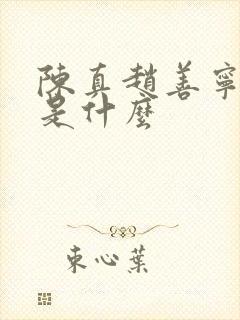 陳真趙善寧
是什麼
束心葉